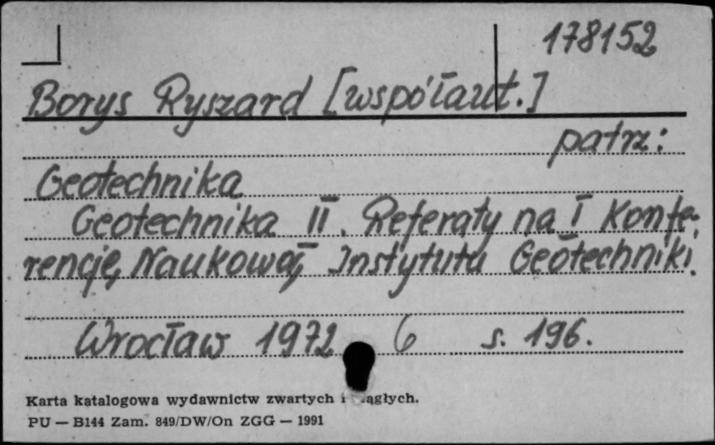 178152
Borys Ryszard [współaut.]
patrz:
Geotechnika
Geotechnika II. Referaty na I Konfe-
rencję Naukową Instytutu Geotechniki.
Wrocław 1972 6 s. 196.
Karta katalogowa wydawnictw zwartych i
PU — B144 Zam. 849/DW/On ZGG — 1991